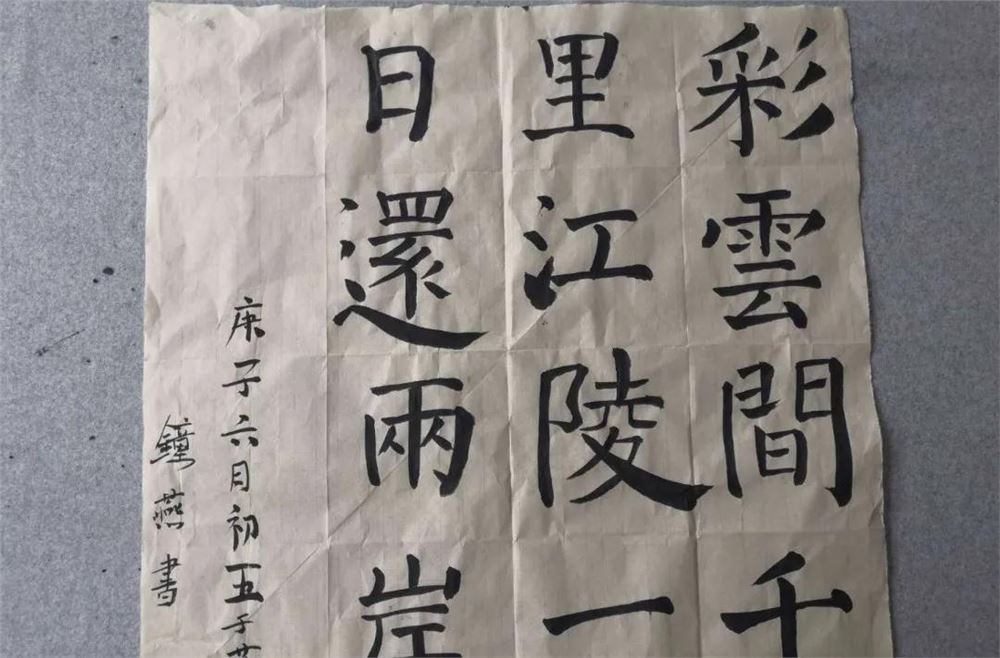 彩雲間千
里江陵一
日還兩岸
庚子六月初五于
鐘燕書